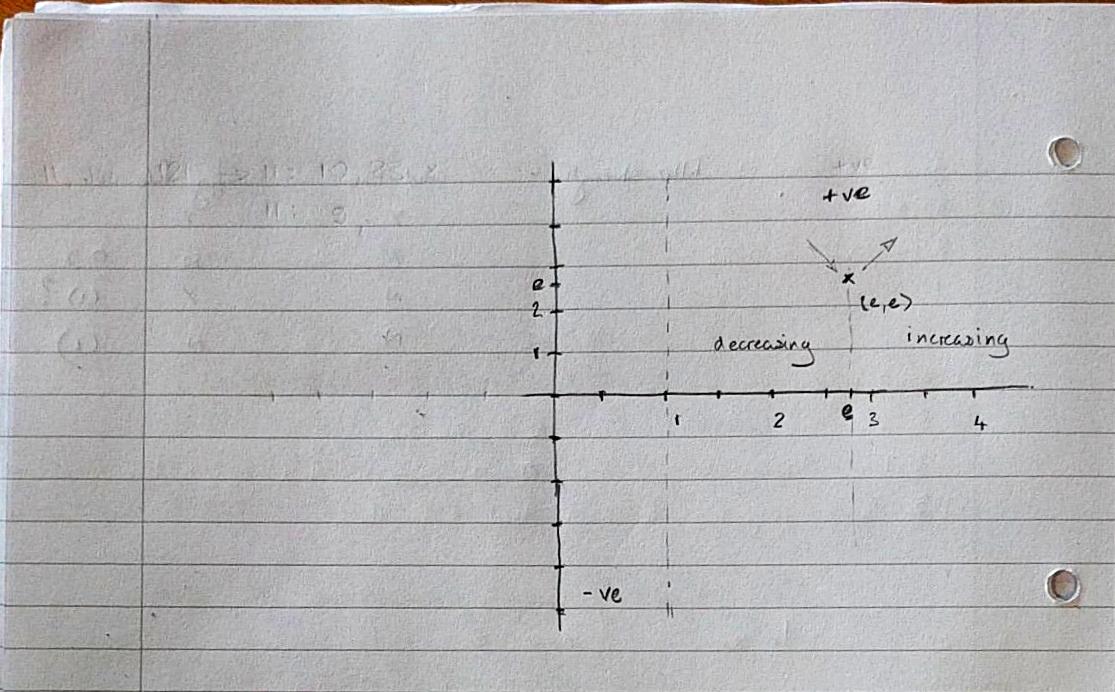 +ve
e
(e,e)
2
decreasing increasing
1
1 2 e 3 4
-ve